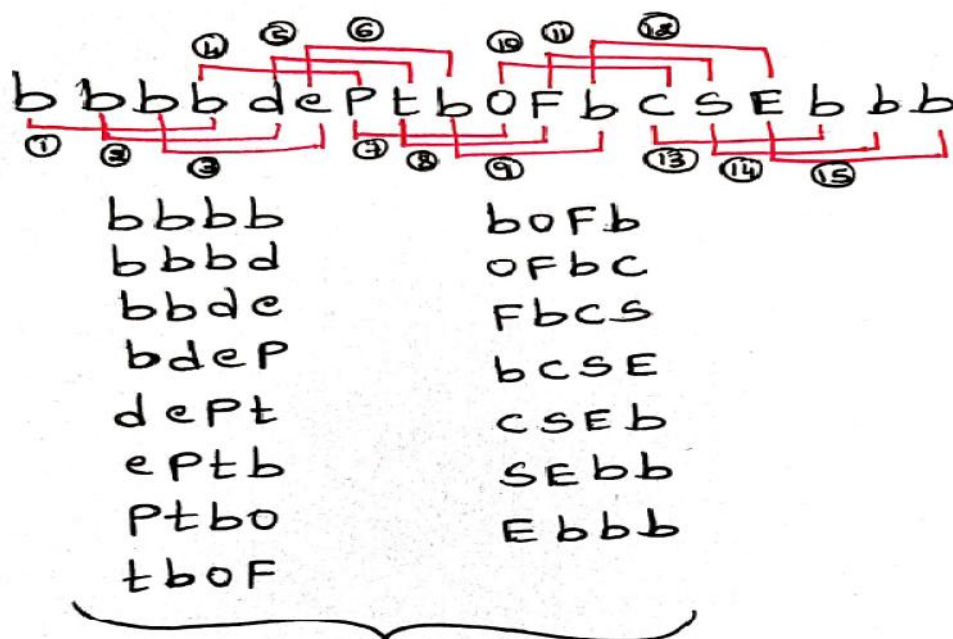 ④ ⑤ ⑥ ⑩ ⑪ ⑫
b b b b d e P t b o F b c s E b b b
① ② ③ ⑦ ⑧ ⑨ ⑬ ⑭ ⑮
b b b b
b b b d
b b d e
b d e P
d e P t
e P t b
P t b o
t b o F
b o F b
o F b c
F b c s
b c s E
c s E b
S E b b
E b b b